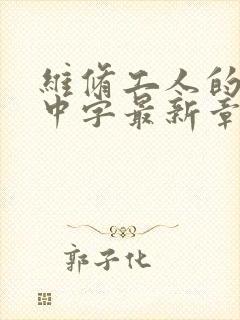 維脩工人的
中字最新章
郭子化